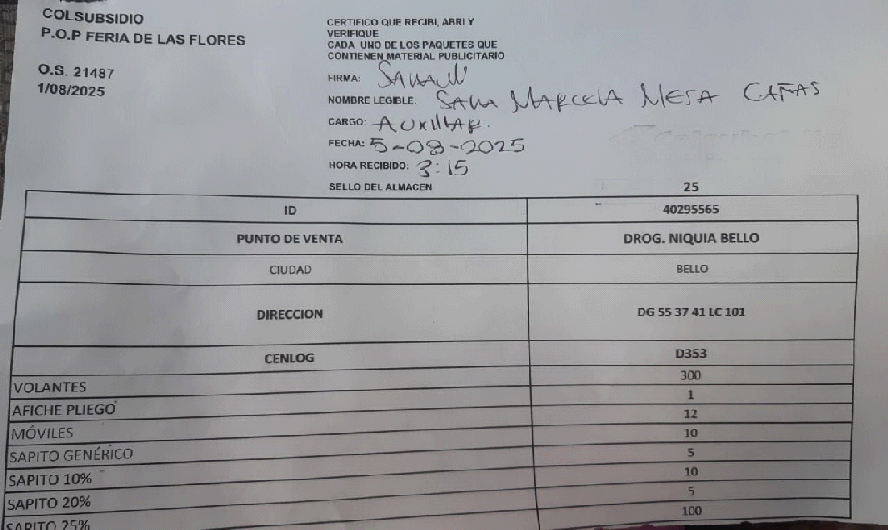 COLSUBSIDIO
P.O.P FERIA DE LAS FLORES
O.S. 21487
1/08/2025
CERTIFICO QUE RECIBI, ABRI Y
VERIFIQUE
CADA UNO DE LOS PAQUETES QUE
CONTIENEN MATERIAL PUBLICITARIO
FIRMA:
NOMBRE LEGIBLE: SARA MARCELA MESA CAÑAS
CARGO: AUXILIAR.
FECHA: 5-08-2025
HORA RECIBIDO: 3:15
SELLO DEL ALMACEN 25
ID 40295565
PUNTO DE VENTA DROG. NIQUIA BELLO
CIUDAD BELLO
DIRECCION DG 55 37 41 LC 101
CENLOG D353
VOLANTES 300
AFICHE PLIEGO 1
MÓVILES 12
SAPITO GENÉRICO 10
SAPITO 10% 5
SAPITO 20% 10
SAPITO 25% 5
100